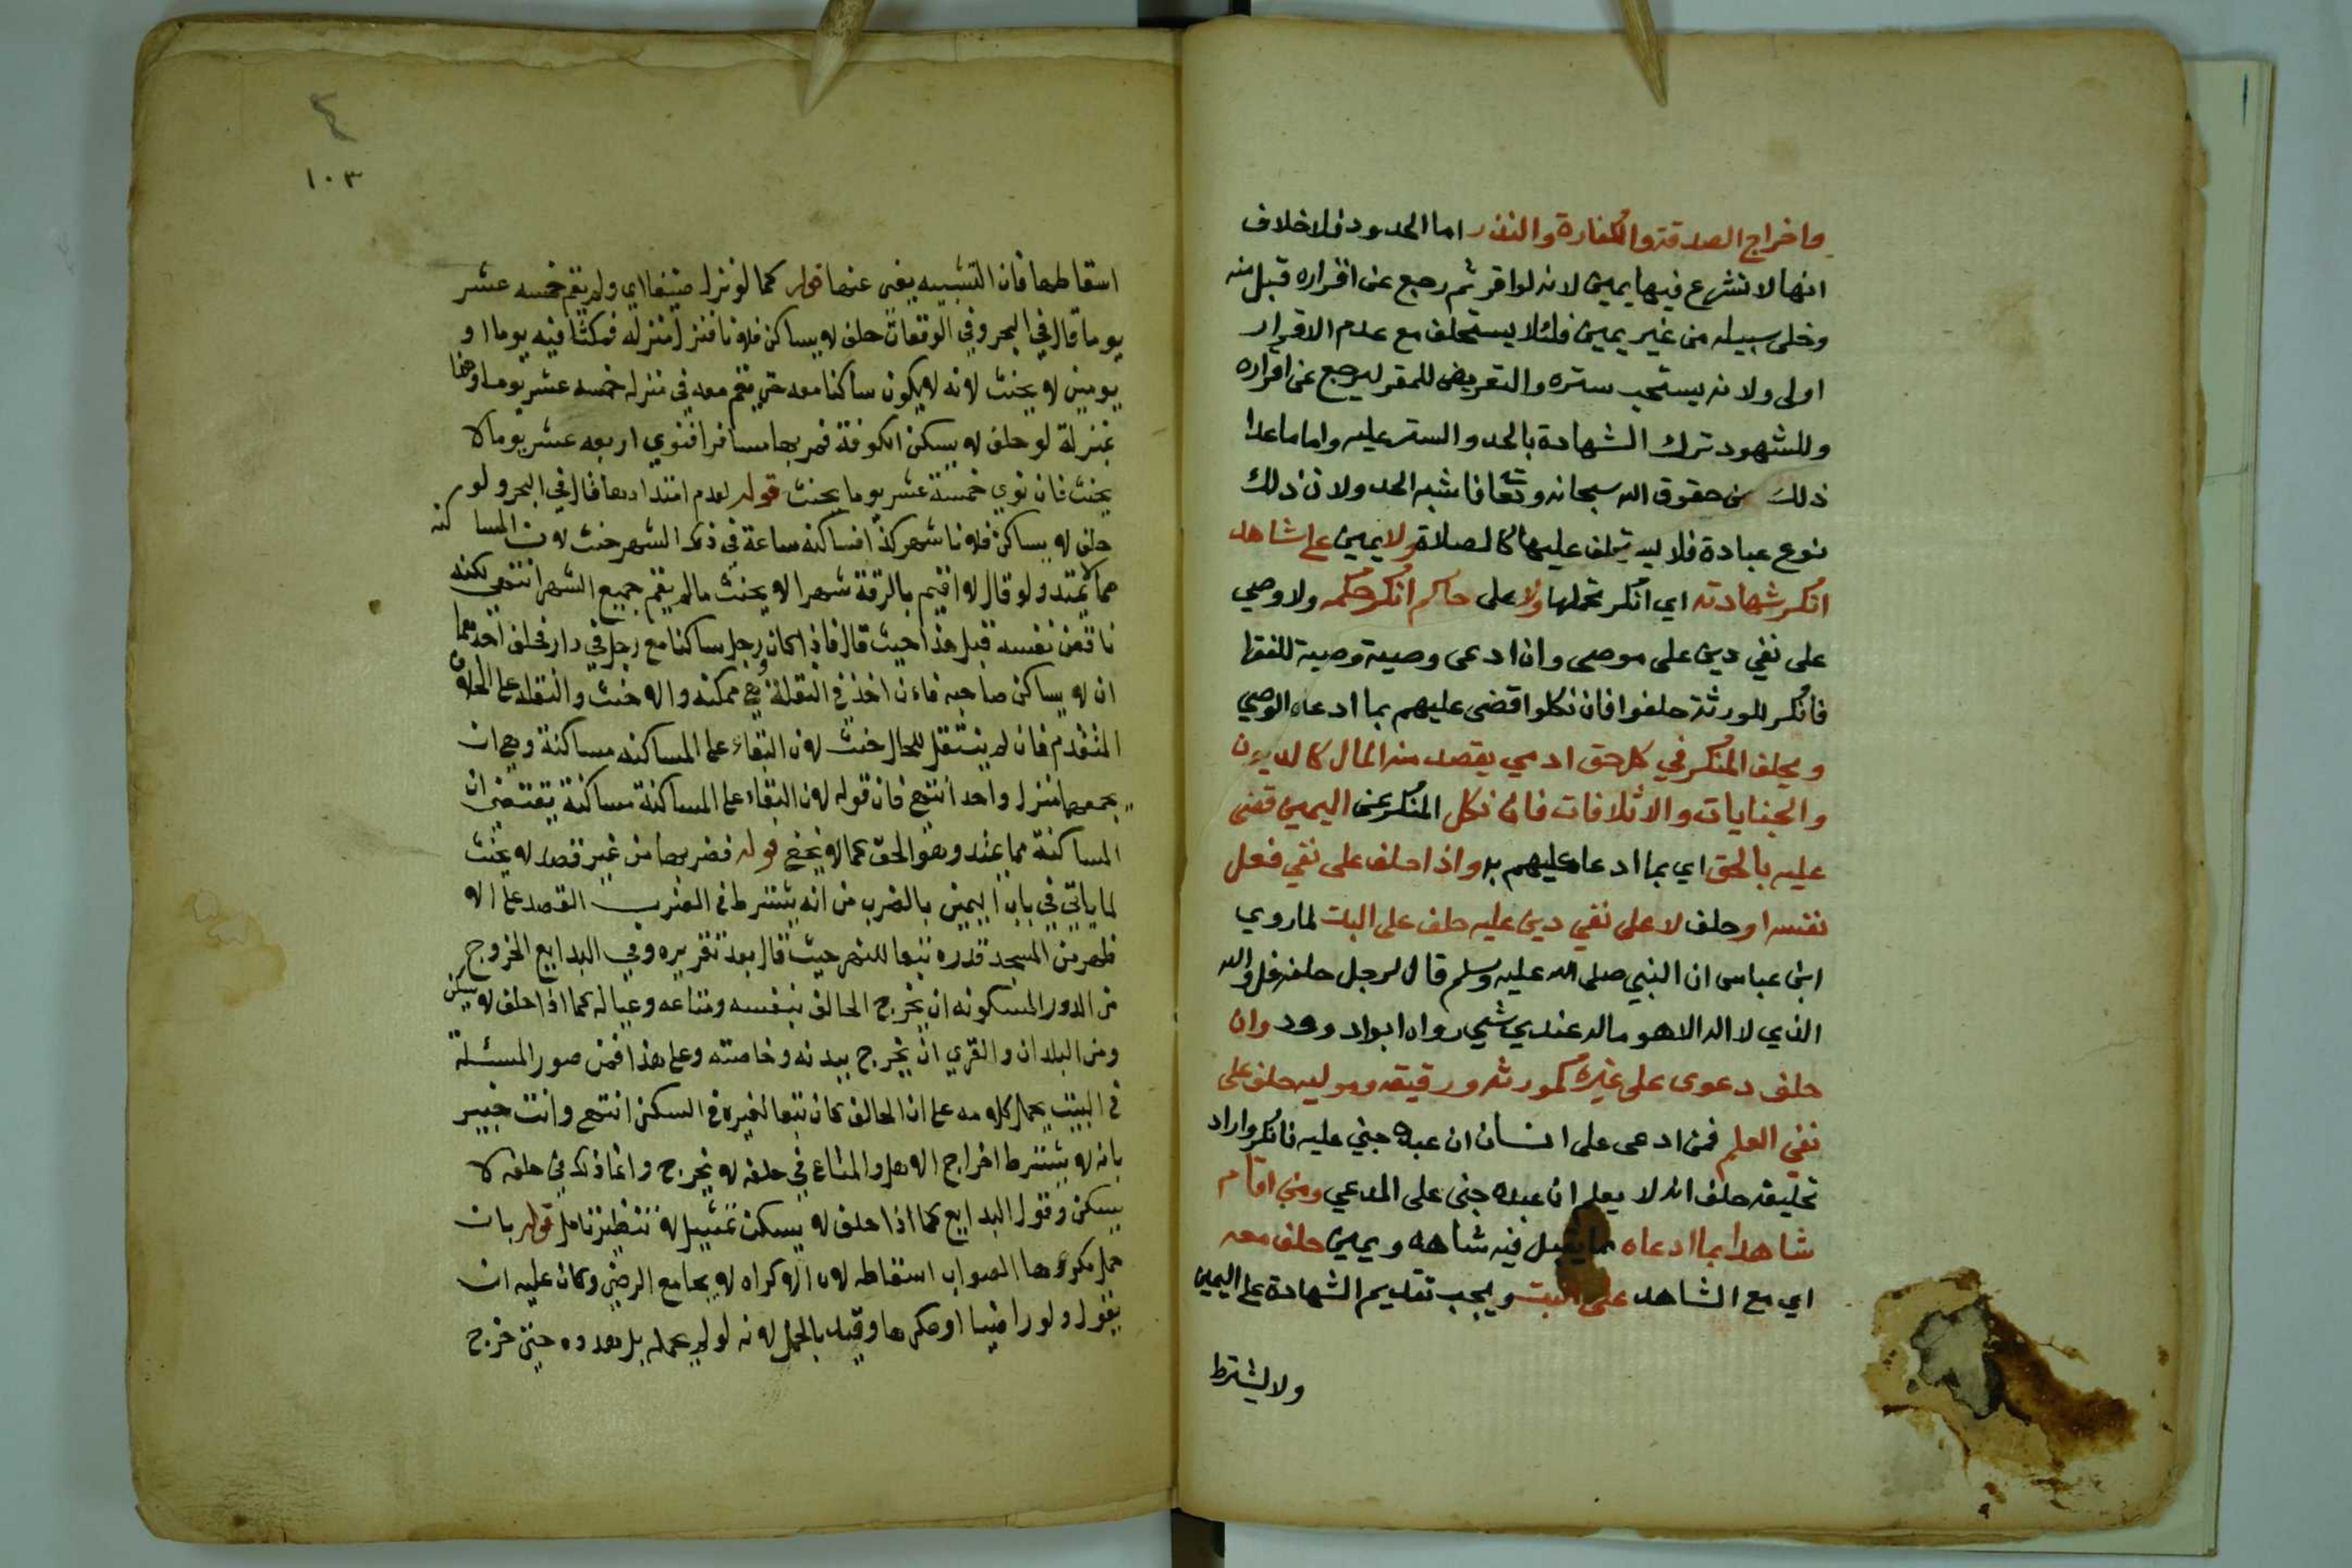 واخراج الصدقة والكفارة والنذر اما الحدود فلا خلاف
انها لا تشرع فيها يمين لانه لو اقر ثم رجع عن اقراره قبل منه
وخلى سبيله من غير يمين فلئلا يستحلف مع عدم الاقرار
اولى ولانه يستحب ستره والتعريض للمقر ليرجع عن اقراره
وللشهود ترك الشهادة بالحد والستر عليه واما ما عدا
ذلك من حقوق الله سبحانه وتعا فاشبه الحد ولان ذلك
نوع عبادة فلا يستحلف عليها كالصلاة ولا يمين على شاهد
انكر شهادته اي انكر تحملها ولا على حاكم انكر حكمه ولا وصي
على نفي دين على موصى وان ادعى وصية وصية للفقرا
فانكر الورثة حلفوا فان نكلوا قضى عليهم بما ادعاه الوصي
ويحلف المنكر في كل حق ادمي يقصد منه المال كالديون
والجنايات والاتلافات فان نكل المنكر عن اليمين قضى
عليه بالحق اي بما ادعا عليهم به واذا حلف على نفي فعل
نفسه او حلف لا على نفي دين عليه حلف على البت لما روي
ابن عباس ان النبي صلى الله عليه وسلم قال لرجل حلفه قل والله
الذي لا اله الا هو ماله عندي شي رواه ابواد وود وان
حلف دعوى على غيره كمورثه ورقيقه وموليه حلف على
نفي العلم فمن ادعى على انسان ان عبده جني عليه فانكر واراد
تحليفه حلف انه لا يعلم ان عبده جنى على المدعي ومن اقام
شاهدا بما ادعاه مما يقبل فيه شاهد ويمين حلف معه
اي مع الشاهد على البت ويجب تقديم الشهادة على اليمين
ولا يشترط
٤
١٠٣
اسقاطها فان التشبيه يغني عنها قوله كما لو نزل ضيفا اي ولم يقم خمسه عشر
يوما قال في البحر وفي الوقعات حلف لا يساكن فلانا فنزل منزله فمكثا فيه يوما او
يومين لا يحنث لانه لا يكون ساكنا معه حتى يقم معه في منزله خمسه عشر يوما وهذا
بمنزلة لو حلف لا يسكن الكوفة فمر بها مسافرا فنوي اربعه عشر يوما لا
يحنث فان نوي خمسة عشر يوما يحنث قوله لعدم امتدادها قال في البحر ولو
حلف لا يساكن فلانا شهر كذا فساكنه ساعة في ذلك الشهر حنث لان المساكنه
مما لا يمتد ولو قال لا اقيم بالرقة شهرا لا يحنث ما لم يقم جميع الشهر انتهي لكنه
ناقض نفسه قبل هذا حيث قال فاذا كان رجل ساكنا مع رجل في دار فحلف احدهما
ان لا يساكن صاحبه فان اخذ في النقلة وهي ممكنه والا حنث والنقله على الخلاف
المتقدم فان لم ينتقل للحال حنث لان البقاء على المساكنه مساكنة وهي ان
يجمعهما منزل واحد انتهي فان قوله لان البقاء على المساكنة مساكنة يقتضي ان
المساكنة مما يمتد وهو الحق كما لا يخفي قوله فضربها من غير قصد لا يحنث
لما ياتي في باب اليمين بالضرب من انه يشترط في الضرب القصد على الا
ظهر من المسجد قدره تبعا للنهر حيث قال بعد تقريره وفي البدايع الخروج
من الدور المسكونه ان يخرج الحالف بنفسه ومتاعه وعياله كما اذا حلف لا يسكن
ومن البلدان والقري ان يخرج ببدنه وخاصته وعلى هذا فمن صور المسئلة
في البيت يحمل كلامه على ان الحالف كان تبعا لغيره في السكن انتهي وانت خبير
بانه لا يشترط اخراج الاهل والمتاع في حلفه لا يخرج وانما ذلك في حلفه لا
يسكن وقول البدايع كما اذا حلف لا يسكن تمثيل لا تنظير تامل قوله بان
حمل مكرها الصواب اسقاطه لان الاكراه لا يجامع الرضي وكان عليه ان
يقول ولو راضيا او مكرها وقيد بالحمل لانه لو لم يحمله بل هدده حتى خرج